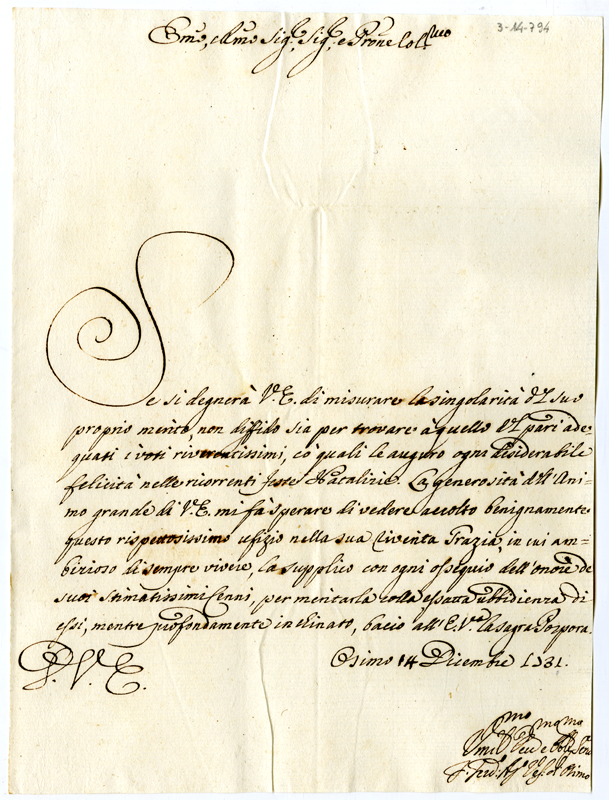 Emo, e Rmo Sig.r, Sig.r e Prone Col.mo
3-14-794
Se si degnerà V.E. di misurare la singolarità del suo
proprio merito, non diffido sia per trovare a quello del pari ade=
quati i voti riverentissimi, co' quali le auguro ogni disiderabile
felicità nelle ricorrenti feste Natalizie. La generosità dell'Ani=
mo grande di V.E. mi fà sperare di vedere accolto benignamente
questo rispettosissimo ufizio nella sua Grazia, in cui am=
birioso di sempre vivere, la supplico con ogni ossequio dell'onore de
suoi stimatissimi Cenni, per meritarla colla essatta ubbidienza di
essi, mentre profondamente inchinato, bacio all'E.V.ra la Sagra Porpora.
Osimo 14 Dicembre 1731.
D. V. E.